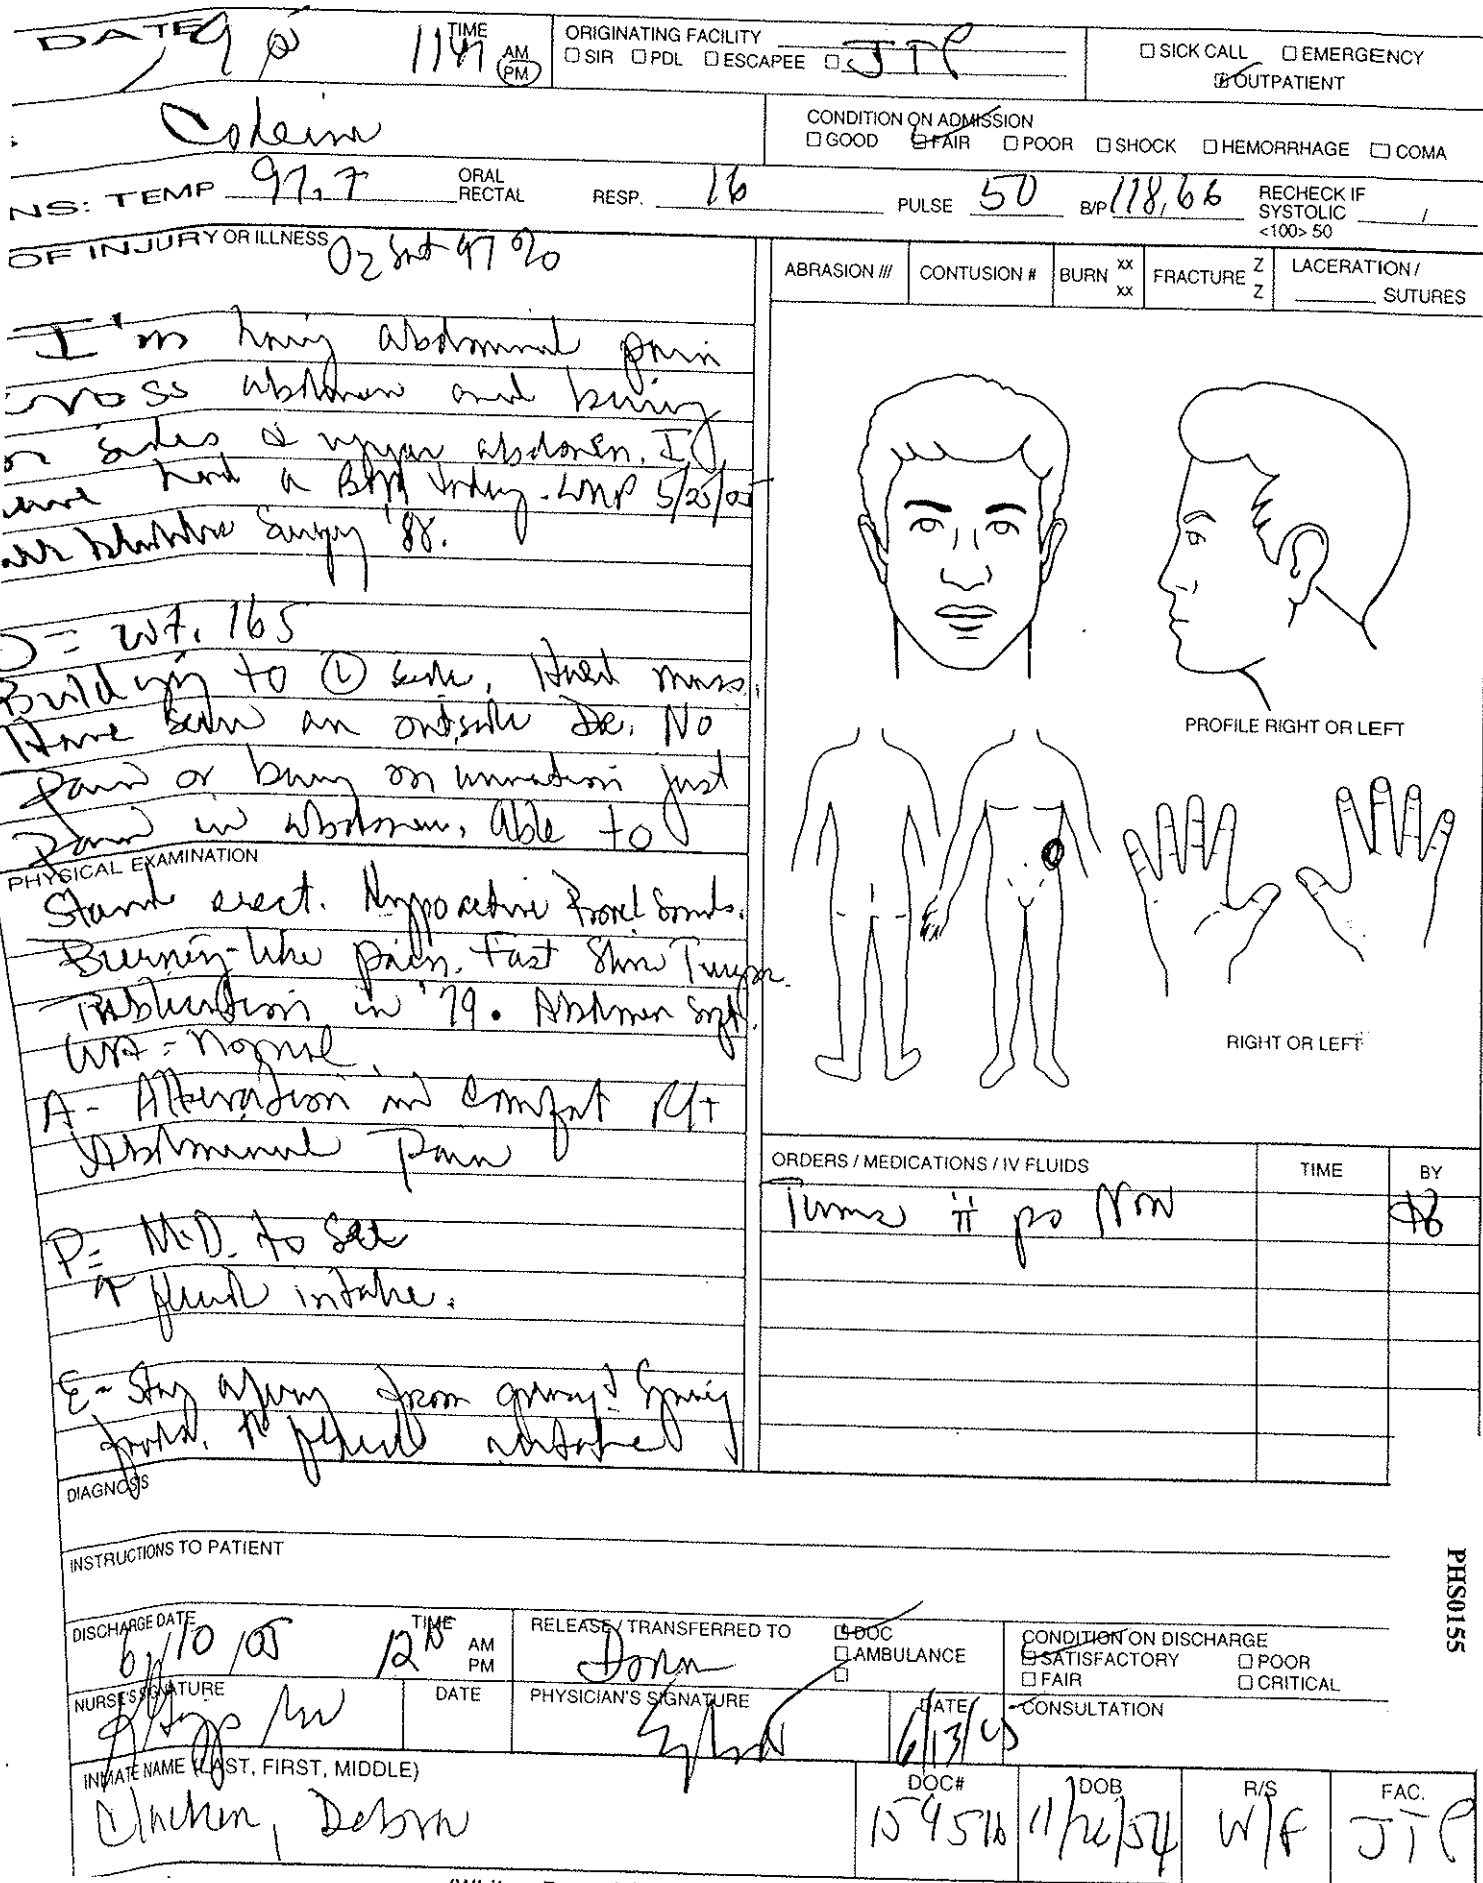 DATE 9 TIME 11 AM PM ORIGINATING FACILITY □ SIR □ PDL □ ESCAPEE □ JTP □ SICK CALL □ EMERGENCY
□ OUTPATIENT
CONDITION ON ADMISSION
□ GOOD □ FAIR □ POOR □ SHOCK □ HEMORRHAGE □ COMA
NS: TEMP 97.7 ORAL RECTAL RESP. 16 PULSE 50 B/P 118,66 RECHECK IF SYSTOLIC / <100> 50
OF INJURY OR ILLNESS O2 Sat 97%
ABRASION /// CONTUSION # BURN xx xx FRACTURE Z Z LACERATION / SUTURES
I'm having abdominal pain
abdomen and
sides & upper abdomen. I
had a BM today. LMP 5/25/05
Surgery '88.
O = wt. 165
to Ⓛ side, Hard mass.
Have seen an outside Dr. No
pain or on urination just
pain in abdomen. Able to
PROFILE RIGHT OR LEFT
PHYSICAL EXAMINATION
Stand erect. Hypoactive Bowel Sounds.
Burning-like pain. Fast Skin Turgor.
in '79. Abdomen soft.
= Normal
RIGHT OR LEFT
A- Alteration in comfort R/t
Abdominal Pain
P= M.D. to See
↑ fluid intake.
E- Stay away from greasy & spicy
foods. ↑ fluid intake
ORDERS / MEDICATIONS / IV FLUIDS TIME BY
Tums ii po Now
DIAGNOSIS
INSTRUCTIONS TO PATIENT
DISCHARGE DATE 6/10/05 TIME 12 AM PM RELEASE / TRANSFERRED TO Dorm □ DOC □ AMBULANCE □
CONDITION ON DISCHARGE
□ SATISFACTORY □ POOR
□ FAIR □ CRITICAL
NURSE'S SIGNATURE DATE PHYSICIAN'S SIGNATURE DATE 6/13/05 CONSULTATION
INMATE NAME (LAST, FIRST, MIDDLE) DOC# DOB R/S FAC.
Debra 11/26/54 W/F JTP
PHS0155